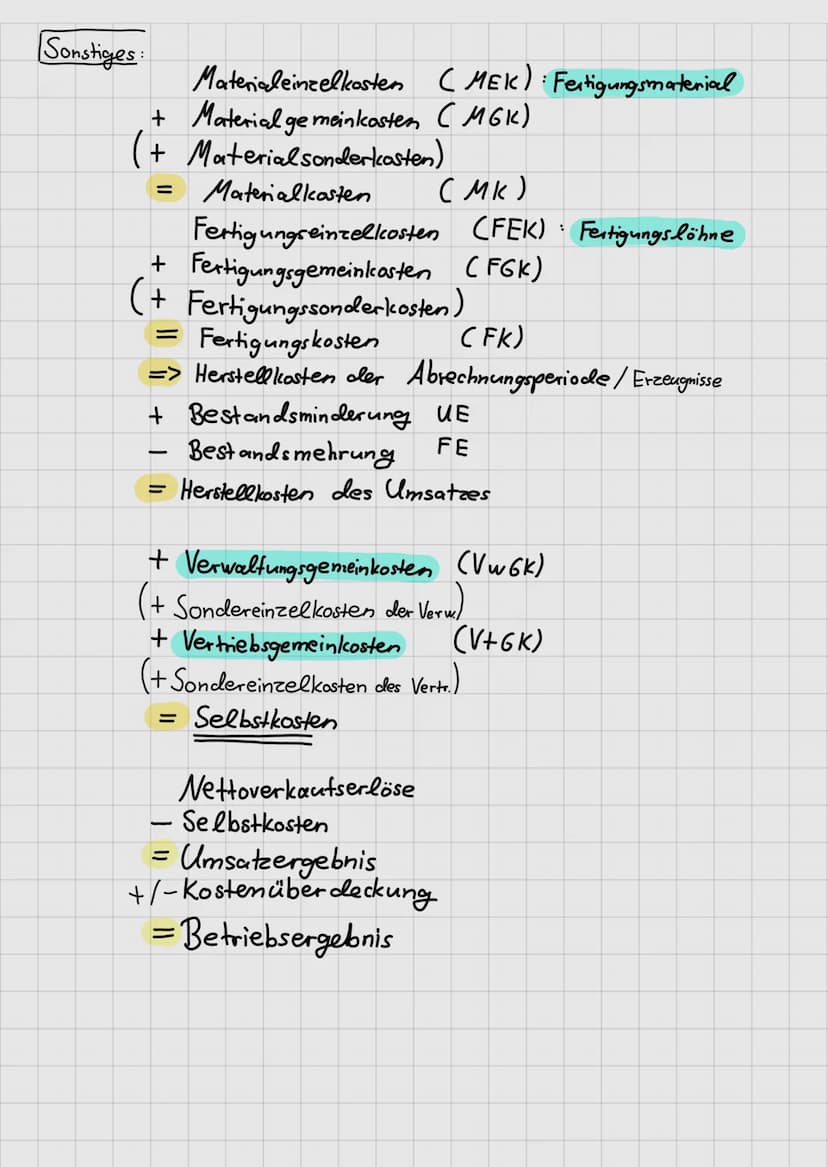 Sonstiges:
Materialeinzelkosten (MEK) : Fertigungsmaterial
+ Materialgemeinkosten (MGK)
(+ Materialsonderkosten)
= Materialkosten (MK)
Fertigungseinzelkosten (FEK) : Fertigungslöhne
+ Fertigungsgemeinkosten (FGK)
(+ Fertigungssonderkosten)
= Fertigungskosten (FK)
=> Herstellkosten der Abrechnungsperiode / Erzeugnisse
+ Bestandsminderung UE
– Bestandsmehrung FE
= Herstellkosten des Umsatzes
+ Verwaltungsgemeinkosten (VwGK)
(+ Sondereinzelkosten der Verw.)
+ Vertriebsgemeinkosten (VtGK)
(+ Sondereinzelkosten des Vertr.)
= Selbstkosten
Nettoverkaufserlöse
– Selbstkosten
= Umsatzergebnis
+/- Kostenüberdeckung
= Betriebsergebnis